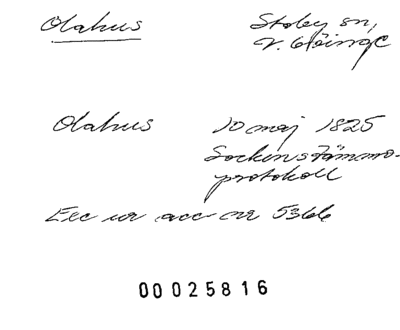 Olahus Stoby sn,
V. Göinge
Olahus 10 maj 1825
Sockenstämmo-
protokoll
Exc ur acc nr 5366
00025816